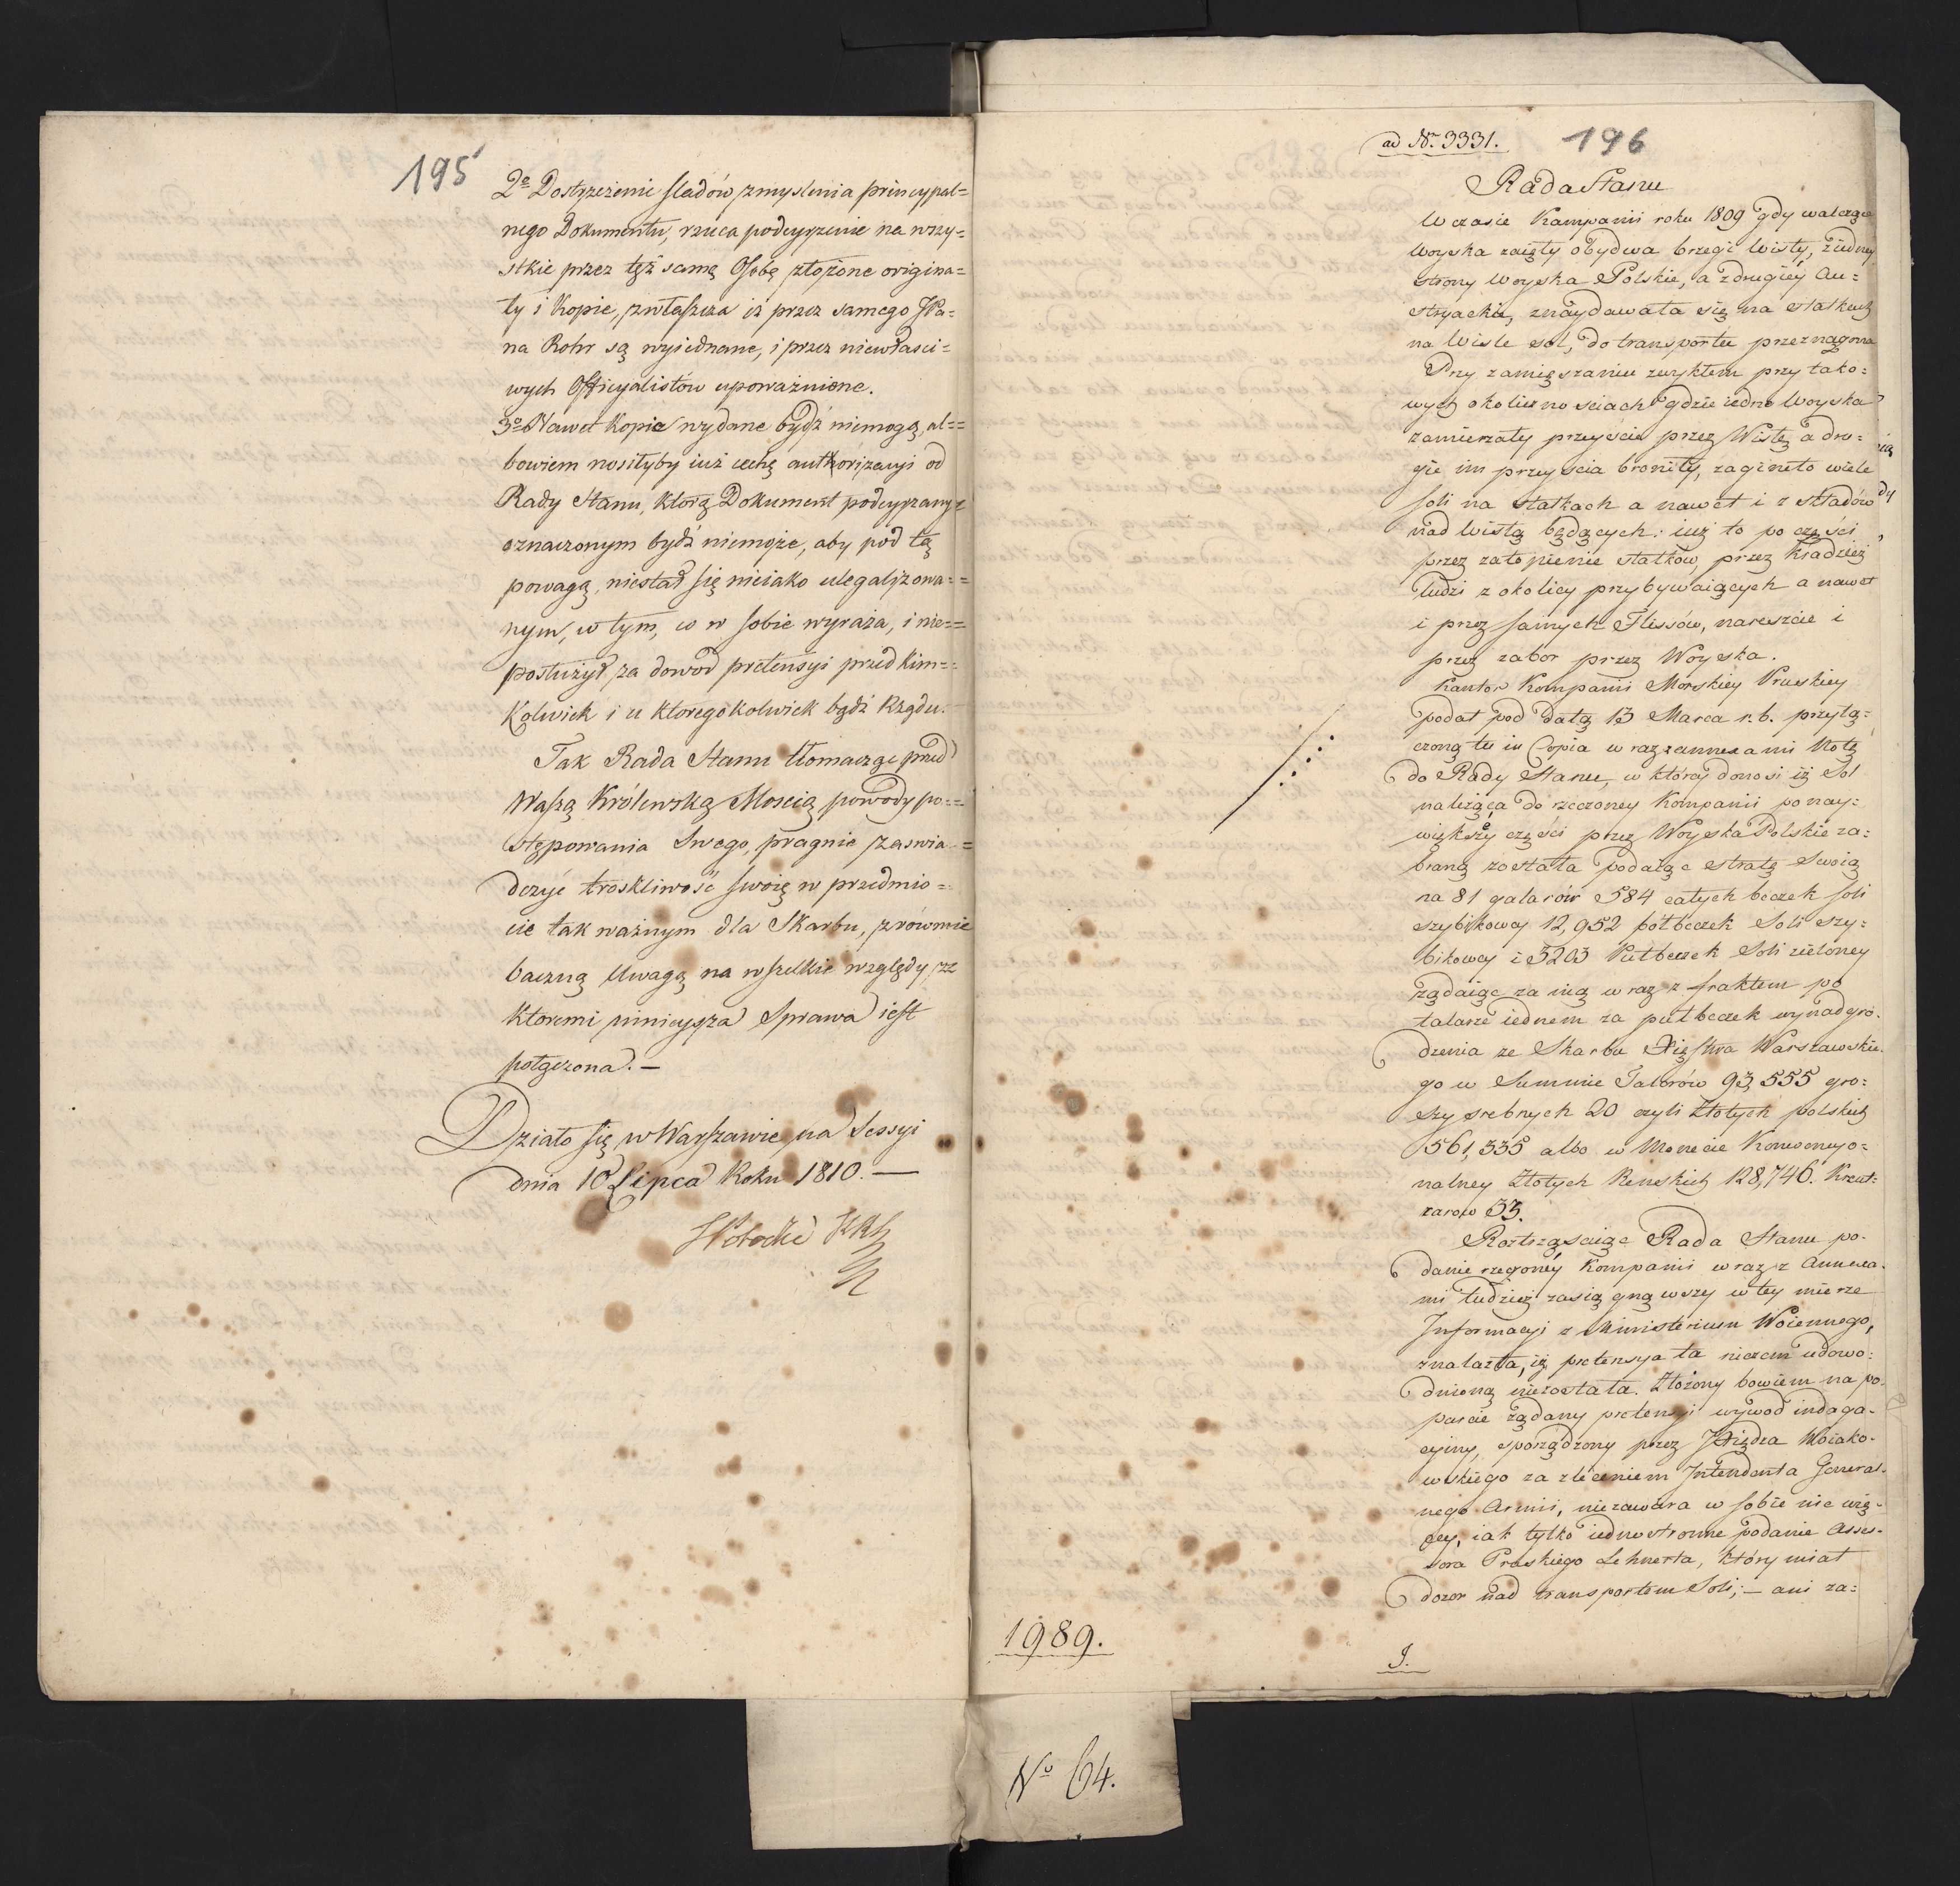 195
2º Dostrzeżenie sladów zmyslenia princypal=
nego Dokumentu, rzuca podeyrzenie na wszy=
stkie przez tęż samą Osobę złożone origina=
ły i kopie, zwłaszcza iż przez samego JPa=
na Rohr są wyiednane, i przez niewłasci=
wych Officyalistów upoważnione.
3º Nawet kopie wydane bydź niemogą, al=
bowiem nosiłyby iuż cechę authoryzacyi od
Rady Stanu, ktorą Dokument podeyrzany
oznaczonym bydź niemoże, aby pod tą
powagą, niestał się nieiako ulegalizowa=
nym, w tym, co w sobie wyraża, i nie=
posłużył za dowod pretensyi przed kim=
kolwiek i u ktoregokolwiek bądź Rządu.
Tak Rada Stanu tłomacząc przed
Waszą Królewską Moscią powody po=
stępowania Swego, pragnie zaswia=
dczyć troskliwość swoię w przedmio=
cie tak ważnym dla Skarbu, zrównie
baczną uwagą na wszelkie względy, ze
ktoremi ninieysza Sprawa iest
połączona. —
Działo się w Warszawie na Sessyi
dnia 10 Lipca Roku 1810. —
ad Nr. 3331.
196
Rada Stanu
W czasie Kampanii roku 1809 gdy walczące
woyska zaięły obydwa brzegi Wisły, ziedney
strony Woyska Polskie, a zdrugiey Au=
stryackie, znaydowała się na statkach
na Wisle sol, do transportu przeznaczona
Przy zamięszaniu zwykłem przy tako=
wych okolicznosciach gdzie iedne Woyska
zamierzały przeyście przez Wisłę a dru=
gie im przeyscia broniły, zaginęło wiele
soli na statkach a nawet i z składów
nad Wisłą będących: iuż to po części
przez zatopienie statków, przez kradzież
ludzi z okolicy przybywaiących a nawet
i przez samych Flissów, nareszcie i
przez zabor przez Woyska.
Kantor Kompanii Morskiey Pruskiey
podał pod datą 13 Marca r. b. przyłą=
czoną tu in Copia wraz z annexami Notę
do Rady Stanu, w którey donosi iż Sol
należąca do rzeczoney Kompanii po nay=
większey części przez Woyska Polskie za=
braną została podaiąc stratę Swoią
na 81 galarów 584 całych beczek soli
szybikowey 12,952 półbeczek Soli szy=
bikowey i 3203 Pułbeczek Soli zieloney
żądaiąc za nią wraz z fraktem po
talarze iednem za pułbeczek wynadgro=
dzenia ze Skarbu Xięstwa Warszawskie=
go w Summie Talarów 93,555 gro=
szy srebrnych 20 czyli Złotych polskich
561,335 albo w Monecie Konwencyo=
nalney Złotych Reńskich 128,746. Kreut=
zarow 33.
Roztrząsaiąc Rada Stanu po=
danie rzeczoney Kompanii wraz z Annexa=
mi tudzież zasiągnąwszy w tey mierze
Informacyi z Ministerium Woiennego,
znalazła, iż pretensya ta niczem udowo=
dnioną niezostała. Złożony bowiem na po=
parcie żądany pretensyi wywod indaga=
cyiny, sporządzony przez Xiędza Woiako=
wskiego za zleceniem Intendenta General=
nego Armii, niezawiera w sobie nic wię=
cey, iak tylko iednostronne podanie Asses=
sora Pruskiego Lehnerta, który miał
dozor nad transportem Soli; — ani za=
1989.
I.
Nº 64.